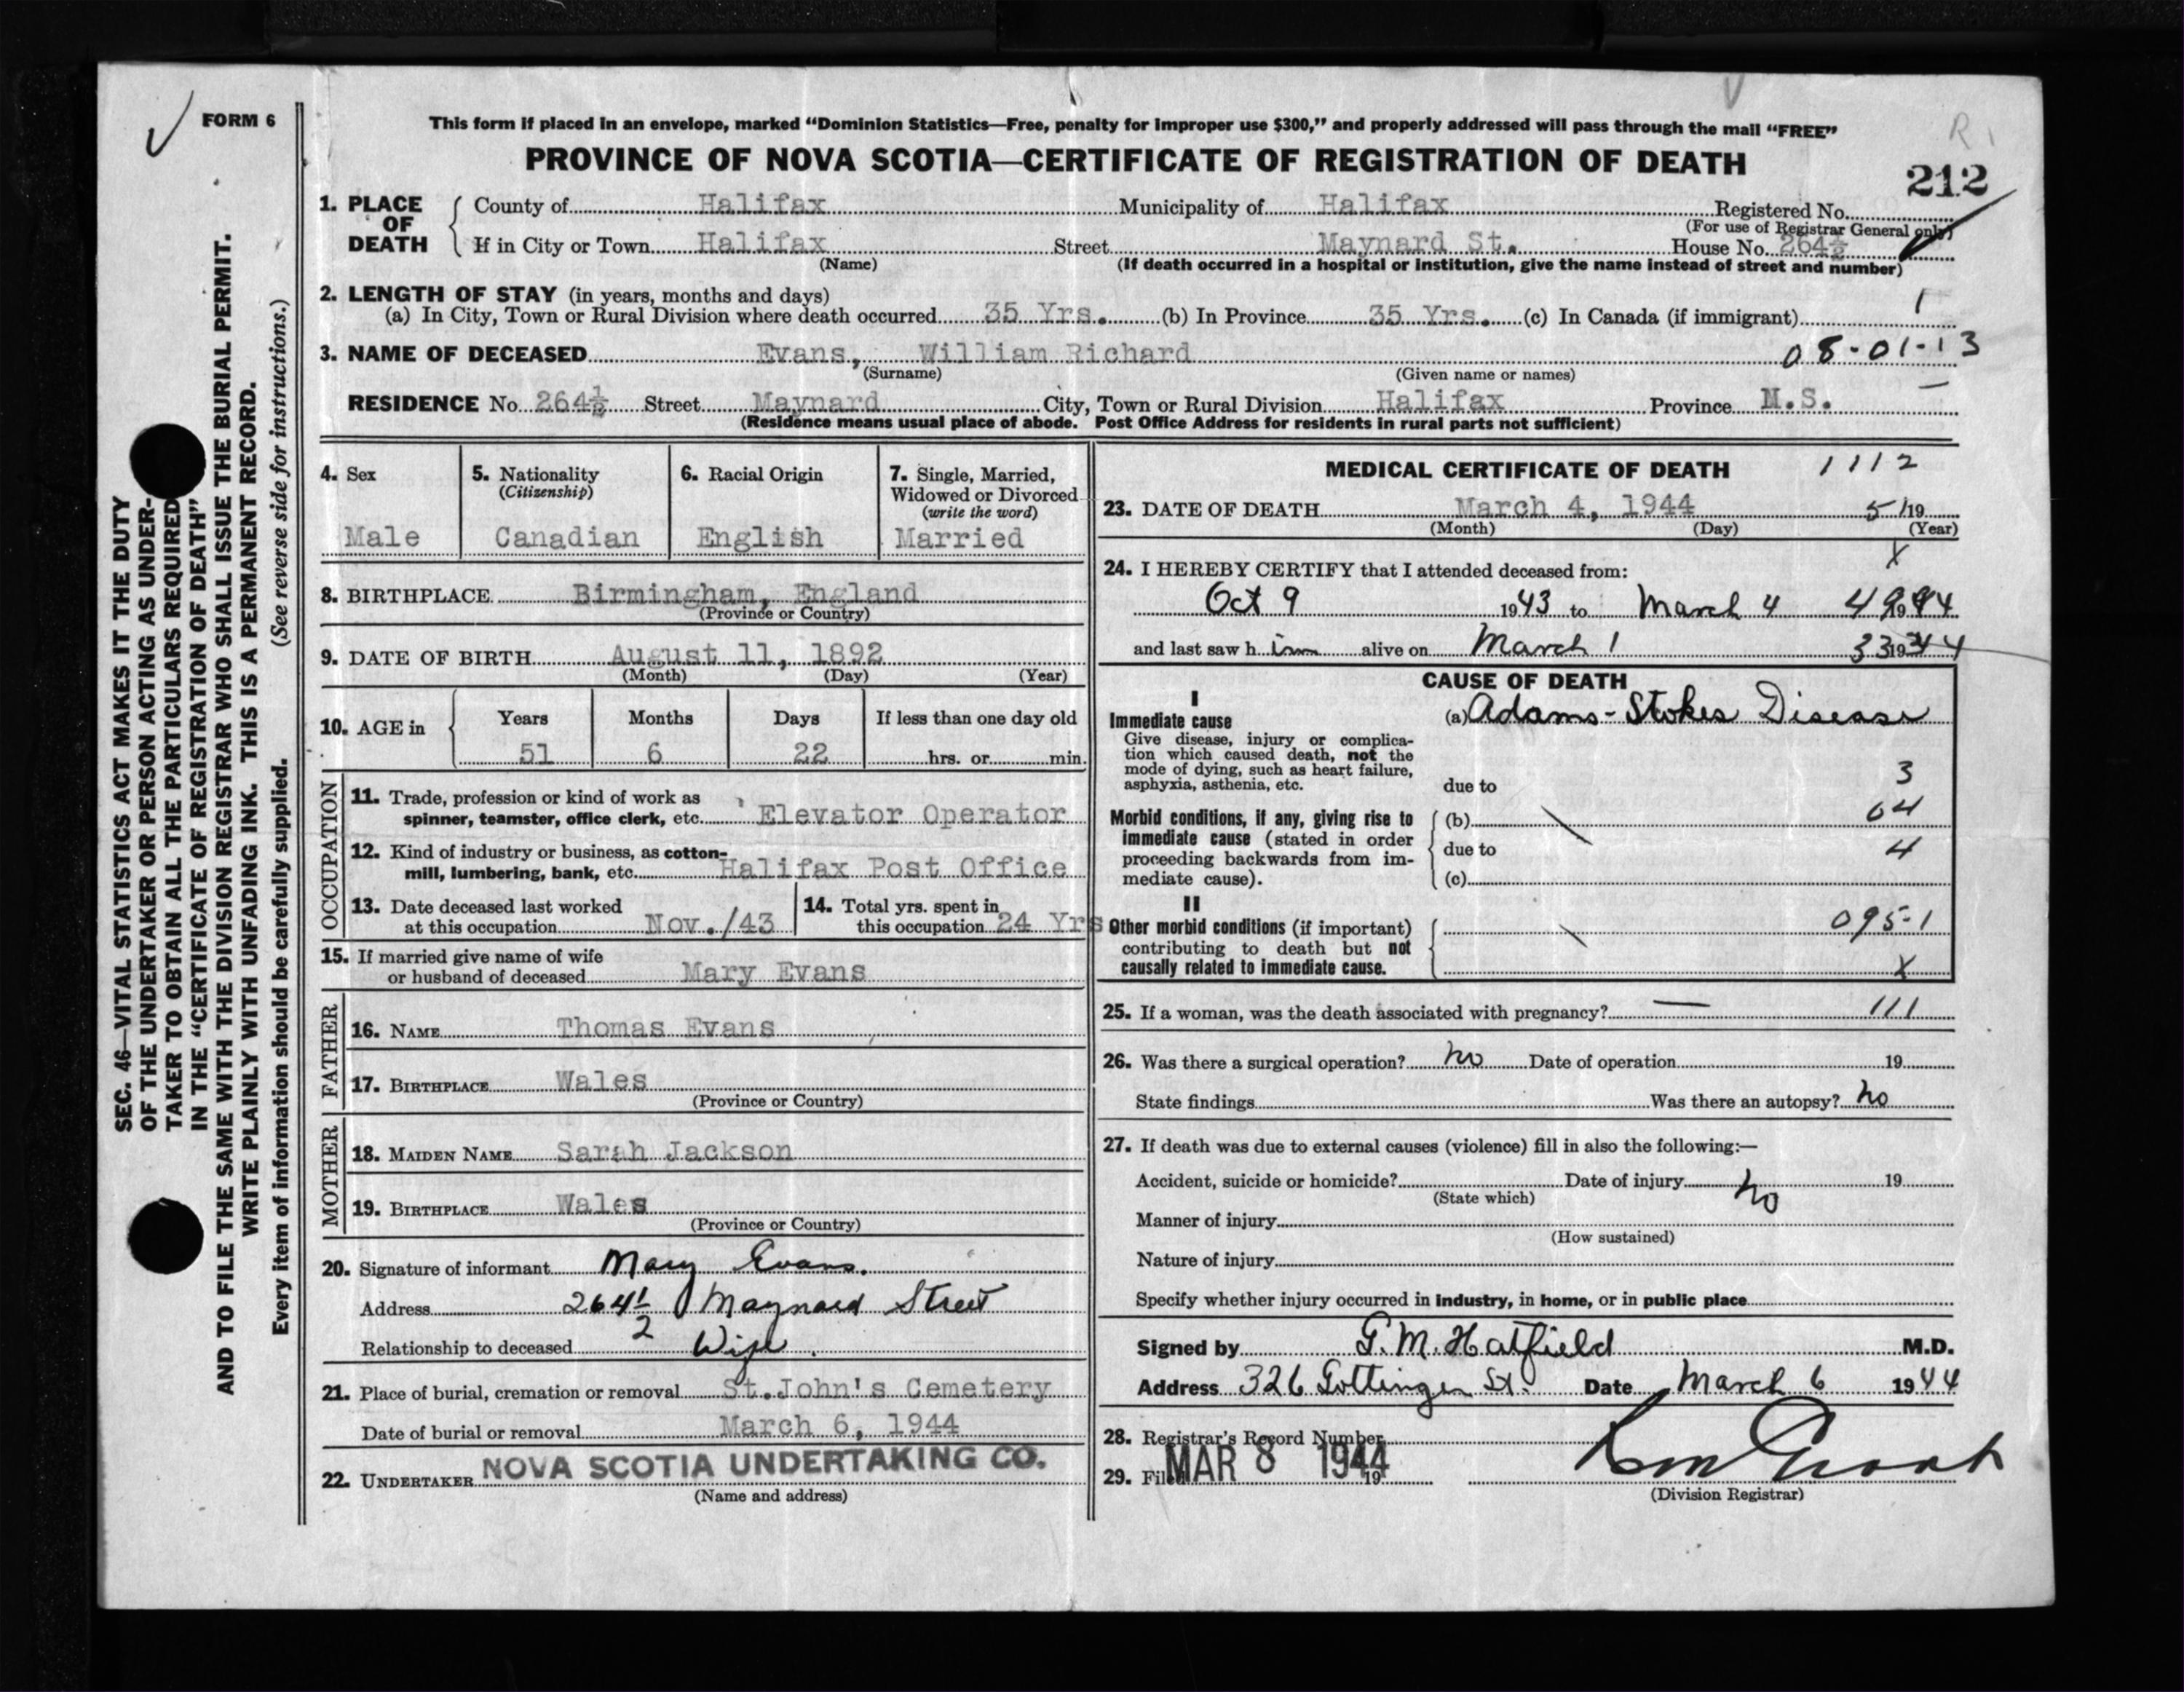 FORM 6
This form if placed in an envelope, marked “Dominion Statistics—Free, penalty for improper use $300,” and properly addressed will pass through the mail “FREE”
PROVINCE OF NOVA SCOTIA—CERTIFICATE OF REGISTRATION OF DEATH
R 1
212
1. PLACE OF DEATH
County of Halifax Municipality of Halifax Registered No.
(For use of Registrar General only)
If in City or Town Halifax Street Maynard St. House No. 264½
(Name) (If death occurred in a hospital or institution, give the name instead of street and number)
2. LENGTH OF STAY (in years, months and days)
(a) In City, Town or Rural Division where death occurred 35 Yrs. (b) In Province 35 Yrs. (c) In Canada (if immigrant) 1
3. NAME OF DECEASED Evans, William Richard 08-01-13
(Surname) (Given name or names)
RESIDENCE No. 264½ Street Maynard City, Town or Rural Division Halifax Province N.S.
(Residence means usual place of abode. Post Office Address for residents in rural parts not sufficient)
4. Sex
Male
5. Nationality
(Citizenship)
Canadian
6. Racial Origin
English
7. Single, Married,
Widowed or Divorced
(write the word)
Married
8. BIRTHPLACE Birmingham, England
(Province or Country)
9. DATE OF BIRTH August 11, 1892
(Month) (Day) (Year)
10. AGE in Years Months Days If less than one day old
51 6 22 hrs. or min.
OCCUPATION
11. Trade, profession or kind of work as
spinner, teamster, office clerk, etc. Elevator Operator
12. Kind of industry or business, as cotton-
mill, lumbering, bank, etc. Halifax Post Office
13. Date deceased last worked
at this occupation Nov./43
14. Total yrs. spent in
this occupation 24 Yrs
15. If married give name of wife
or husband of deceased Mary Evans
FATHER
16. NAME Thomas Evans
17. BIRTHPLACE Wales
(Province or Country)
MOTHER
18. MAIDEN NAME Sarah Jackson
19. BIRTHPLACE Wales
(Province or Country)
20. Signature of informant Mary Evans.
Address 264½ Maynard Street
Relationship to deceased Wife.
21. Place of burial, cremation or removal St.John's Cemetery
Date of burial or removal March 6, 1944
22. UNDERTAKER NOVA SCOTIA UNDERTAKING CO.
(Name and address)
MEDICAL CERTIFICATE OF DEATH 1112
23. DATE OF DEATH March 4, 1944 51 19
(Month) (Day) (Year)
X
24. I HEREBY CERTIFY that I attended deceased from:
Oct 9 1943 to March 4 49 1944
and last saw him alive on March 1 33 1944
CAUSE OF DEATH
I
Immediate cause (a) Adams-Stokes Disease
Give disease, injury or complica-
tion which caused death, not the
mode of dying, such as heart failure,
asphyxia, asthenia, etc. due to 3
Morbid conditions, if any, giving rise to (b) 04
immediate cause (stated in order due to 4
proceeding backwards from im-
mediate cause). (c)
II
Other morbid conditions (if important) 095-1
contributing to death but not
causally related to immediate cause. X
25. If a woman, was the death associated with pregnancy? — 111
26. Was there a surgical operation? no Date of operation 19
State findings Was there an autopsy? no
27. If death was due to external causes (violence) fill in also the following:—
Accident, suicide or homicide? Date of injury no 19
(State which)
Manner of injury
(How sustained)
Nature of injury
Specify whether injury occurred in industry, in home, or in public place
Signed by G. M. Hatfield M.D.
Address 326 Gottingen St. Date March 6 1944
28. Registrar's Record Number
29. Filed MAR 8 1944 19
(Division Registrar)
SEC. 46—VITAL STATISTICS ACT MAKES IT THE DUTY
OF THE UNDERTAKER OR PERSON ACTING AS UNDER-
TAKER TO OBTAIN ALL THE PARTICULARS REQUIRED
IN THE “CERTIFICATE OF REGISTRATION OF DEATH”
AND TO FILE THE SAME WITH THE DIVISION REGISTRAR WHO SHALL ISSUE THE BURIAL PERMIT.
WRITE PLAINLY WITH UNFADING INK. THIS IS A PERMANENT RECORD.
Every item of information should be carefully supplied. (See reverse side for instructions.)